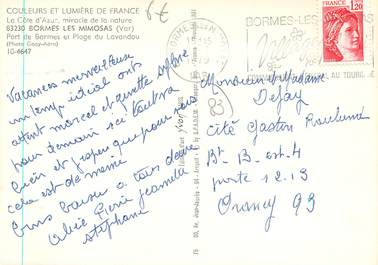 COULEURS ET LUMIÈRE DE FRANCE
La Côte d'Azur, miracle de la nature
83230 BORMES LES MIMOSAS (Var)
Port de Bormes et Plage du Lavandou
(Photo Gicay-Aéro)
10-4647
6 €
Vacances merveilleuses
un temps idéal ont
attend marcel et ginette
pour demain ici tout va
bien et j'espère que pour vous
cela est de même
Bons baisers à tous deux
Pierre jeannette
stéphane
BORMES-LES
AU TOURISME
1,20
Monsieur et Madame
Dejay
83
cité Gaston Roulaud
Bt B. est. 4
porte 12.13
Drancy 93